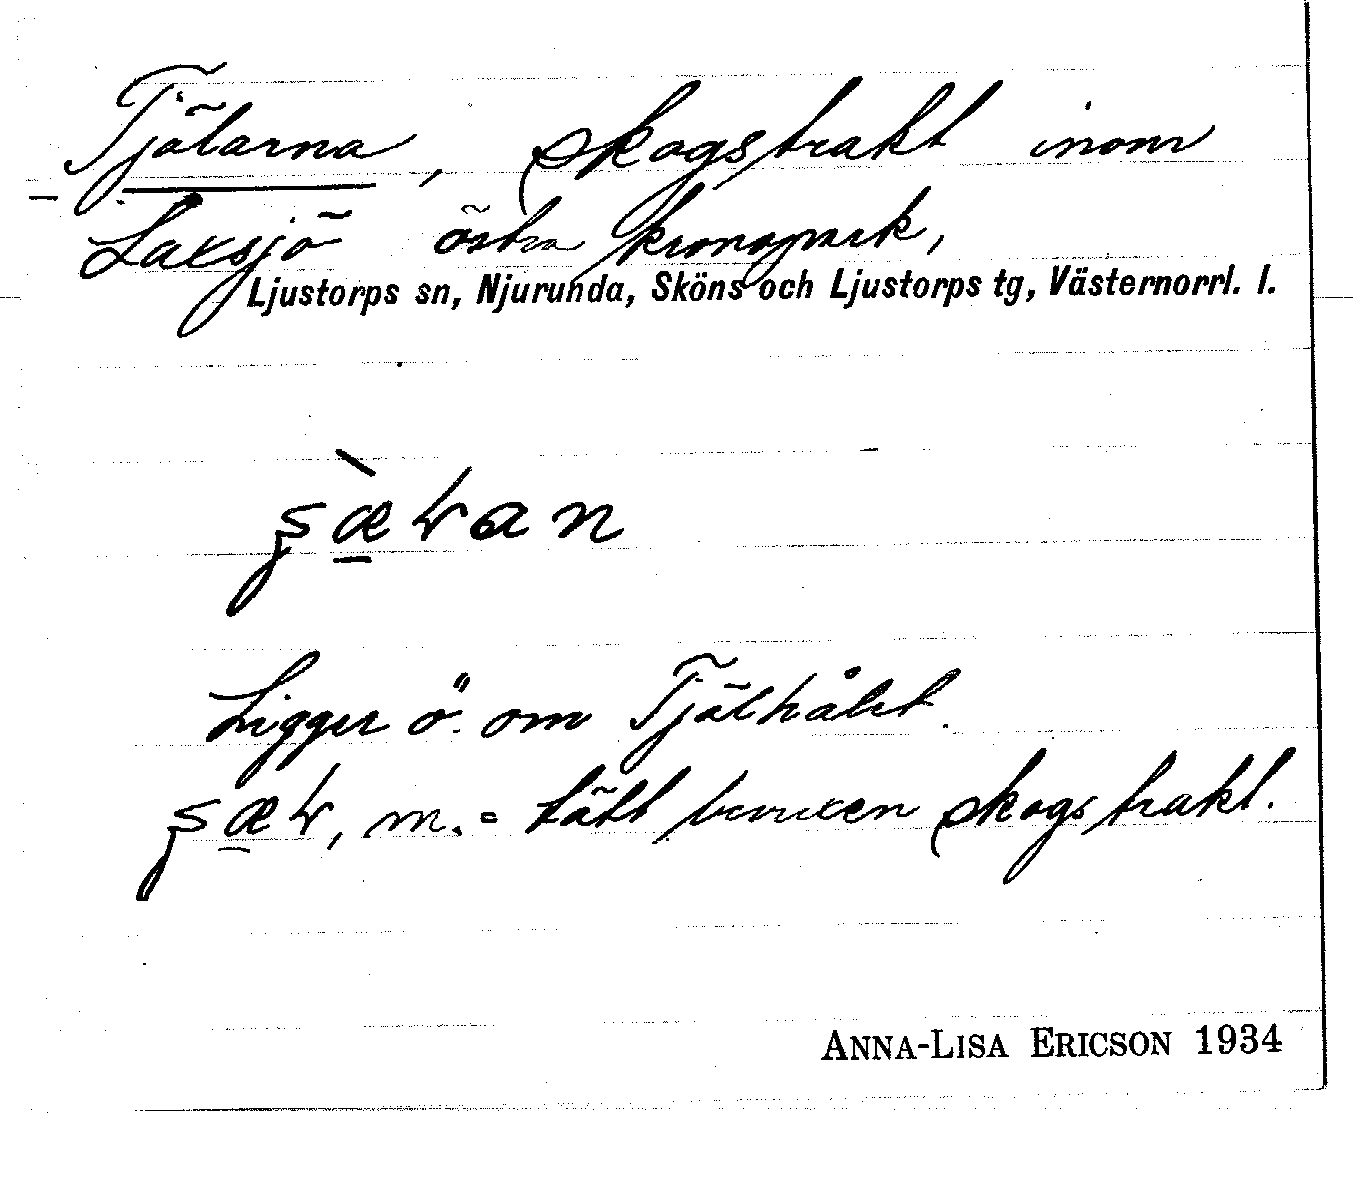 Tjälarna, skogstrakt inom
Laxsjö östra kronopark,
Ljustorps sn, Njurunda, Sköns och Ljustorps tg, Västernorrl. l.
Ligger ö. om Tjälhålet.
m. = tätt bevuxen skogstrakt.
ANNA-LISA ERICSON 1934